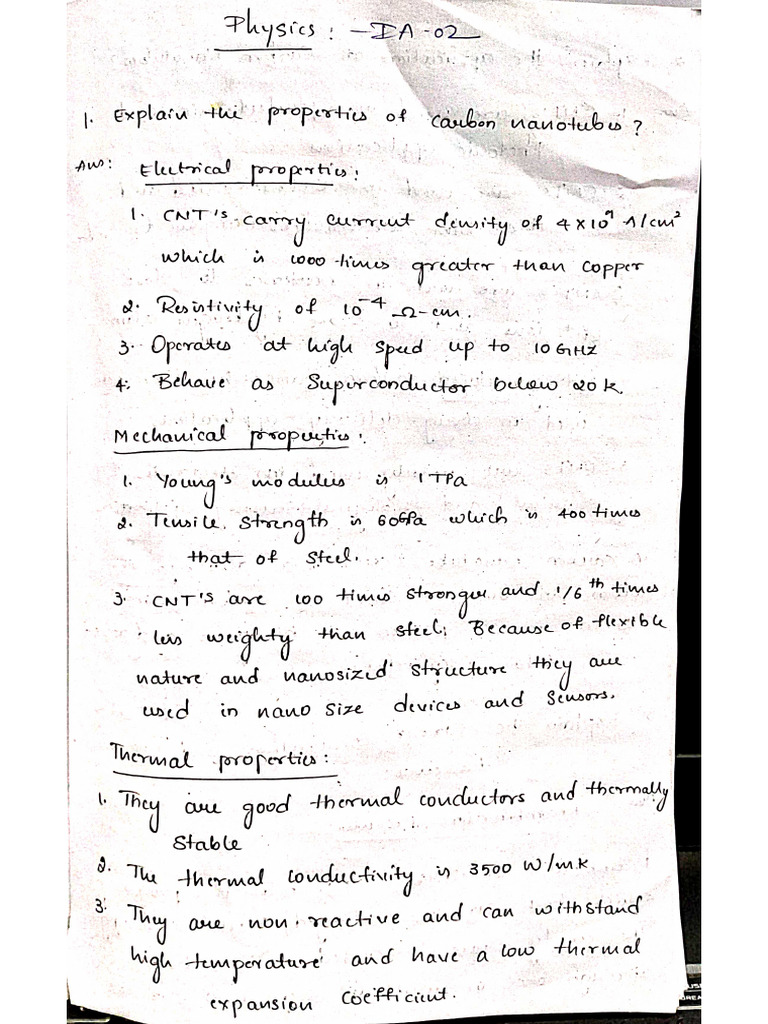 Physics: - DA-02
1. Explain the properties of carbon nanotubes?
Ans: Electrical properties:
1. CNT's carry current density of 4×10⁹ A/cm²
which is 1000 times greater than copper
2. Resistivity of 10⁻⁴ Ω-cm.
3. Operates at high speed up to 10GHz
4. Behave as Superconductor below 20k.
Mechanical properties:
1. Young's modulus is 1 TPa
2. Tensile strength is 60GPa which is 400 times
that of steel.
3. CNT's are 100 times stronger and 1/6th times
less weighty than steel; Because of flexible
nature and nanosized structure they are
used in nano size devices and sensors.
Thermal properties:
1. They are good thermal conductors and thermally
stable
2. The thermal conductivity is 3500 W/m.K
3. They are non-reactive and can withstand
high temperature and have a low thermal
expansion coefficient.